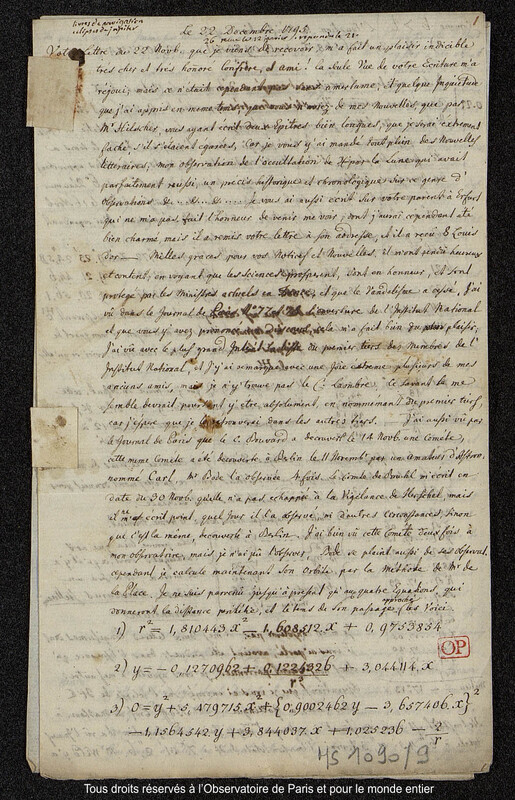 1
livres de navigation
le 22 Decembre 1795.
Votre lettre du 22 Novb. que je viens de recevoir m'a fait un plaisir indicible
tres cher et très honoré confrere, et ami! la seule Vue de votre Ecriture m'a
réjoui, mais ce n'etait cependant pas sans amertume, et quelque Inquietude
que j'ai appris en meme tems que vous n'avez de mes Nouvelles, que par
Mr Hilscher, vous ayant écrit deux Epitres bien longues, que je serai extrement
faché s'ils étaient égarées, Car je vous y'ai mandé tout plein des Nouvelles
litteraires; mon observation de l'occultation de par la Lune qui avait
parfaitement reussi, un précis historique et chronologique sur ce genre d'
observations je vous ai aussi écrit sur votre parent à Erfurt
qui ne m'a pas fait l'honneur de venir me voir; dont j'aurai cependant été
bien charmé, mais il a remis votre lettre à son addresse, et il a reçu 8 Louis
d'or Milles graces pour vos Notices et Nouvelles, il m'ont rendu heureux
et content, en voyant que les sciences prosperent, sont en honneur, et sont
protegé par les Ministres actuels en France, et que le Vandalisme a cessé, J'ai
vu dans le Journal de Paris l'ouverture de l'Institut National
et que vous y avez prononcé un Discours, cela m'a fait bien du plaisir,
J'ai vu avec le plus grand Interet la liste du premier tiers des Membres de l'
Institut National, et j'y ai remarqué avec une Joie extreme plusieurs de mes
anciens amis, mais je n'y trouve pas le C. Lambre. Ce savant ce me
semble devrait pourtant y être absolument, en nommement du premier tiers,
car j'espere que je le trouverai dans les autres tiers. J'ai aussi vu par
le Journal de Paris que le C. Bouvard a decouvert le 14 Novb. une Comète,
cette meme Comète a été decouverte à Berlin le 11 Novemb. par un Amateur d'Astron.
nommé Carl, Mr Bode l'a observée 4 fois. Le Comte de Bruhl m'écrit en
date du 30 Novb. qu'elle n'a pas echappée à la Vigilance de Herschel, mais
il ne m'ecrit point, quel jour il l'a observé, ni d'autres circonstances, sinon
que c'est la meme, decouverte à Berlin. J'ai bien vu cette Comète deux fois à
mon observatoire, mais je n'ai pu l'observer. Bode se plaint aussi de ses observat.
cependant je calcule maintenant son Orbite par la Méthode de Mr de
la Place. Je ne suis parvenu jusqu'à present qu'aux quatre Equations, qui
donneront la distance perihelie, et le tems de son passage approché, les Voici
1) r² = 1,810443. x² – 1,608512. x + 0,9753854
2) y = – 0,1270962 + 0,1224326/r³ + 3,044114. x
3) 0 = y² + 5,479715. x + {0,9002462 y – 3,657406. x}²
– 1,1564542. y + 3,844037. x + 1,025236 – 2/r
OP
MS 1090/9
Tous droits réservés à l'Observatoire de Paris et pour le monde entier